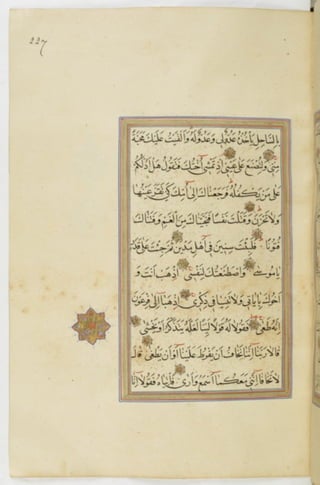 227
بِالسَّاحِلِ يَأْخُذْهُ عَدُوٌّ لِي وَعَدُوٌّ لَهُ وَأَلْقَيْتُ عَلَيْكَ مَحَبَّةً
مِنِّي وَلِتُصْنَعَ عَلَى عَيْنِي إِذْ تَمْشِي أُخْتُكَ فَتَقُولُ هَلْ أَدُلُّكُمْ
عَلَى مَنْ يَكْفُلُهُ فَرَجَعْنَاكَ إِلَى أُمِّكَ كَيْ تَقَرَّ عَيْنُهَا
وَلَا تَحْزَنَ وَقَتَلْتَ نَفْسًا فَنَجَّيْنَاكَ مِنَ الْغَمِّ وَفَتَنَّاكَ
فُتُونًا فَلَبِثْتَ سِنِينَ فِي أَهْلِ مَدْيَنَ ثُمَّ جِئْتَ عَلَى قَدَرٍ
يَا مُوسَى وَاصْطَنَعْتُكَ لِنَفْسِي اذْهَبْ أَنْتَ وَ
أَخُوكَ بِآيَاتِي وَلَا تَنِيَا فِي ذِكْرِي اذْهَبَا إِلَى فِرْعَوْنَ
إِنَّهُ طَغَى فَقُولَا لَهُ قَوْلًا لَيِّنًا لَعَلَّهُ يَتَذَكَّرُ أَوْ يَخْشَى
قَالَا رَبَّنَا إِنَّنَا نَخَافُ أَنْ يَفْرُطَ عَلَيْنَا أَوْ أَنْ يَطْغَى قَالَ
لَا تَخَافَا إِنَّنِي مَعَكُمَا أَسْمَعُ وَأَرَى فَأْتِيَاهُ فَقُولَا إِنَّا